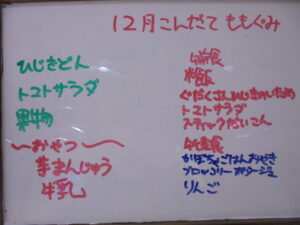 12月こんだて ももぐみ
ひじきどん
トマトサラダ
果物
〜おやつ〜
芋まんじゅう
牛乳
ぐだくさんひじきのいため
トマトサラダ
スティックだいこん
かぼちゃごはんおやき
ブロッコリーポタージュ
りんご